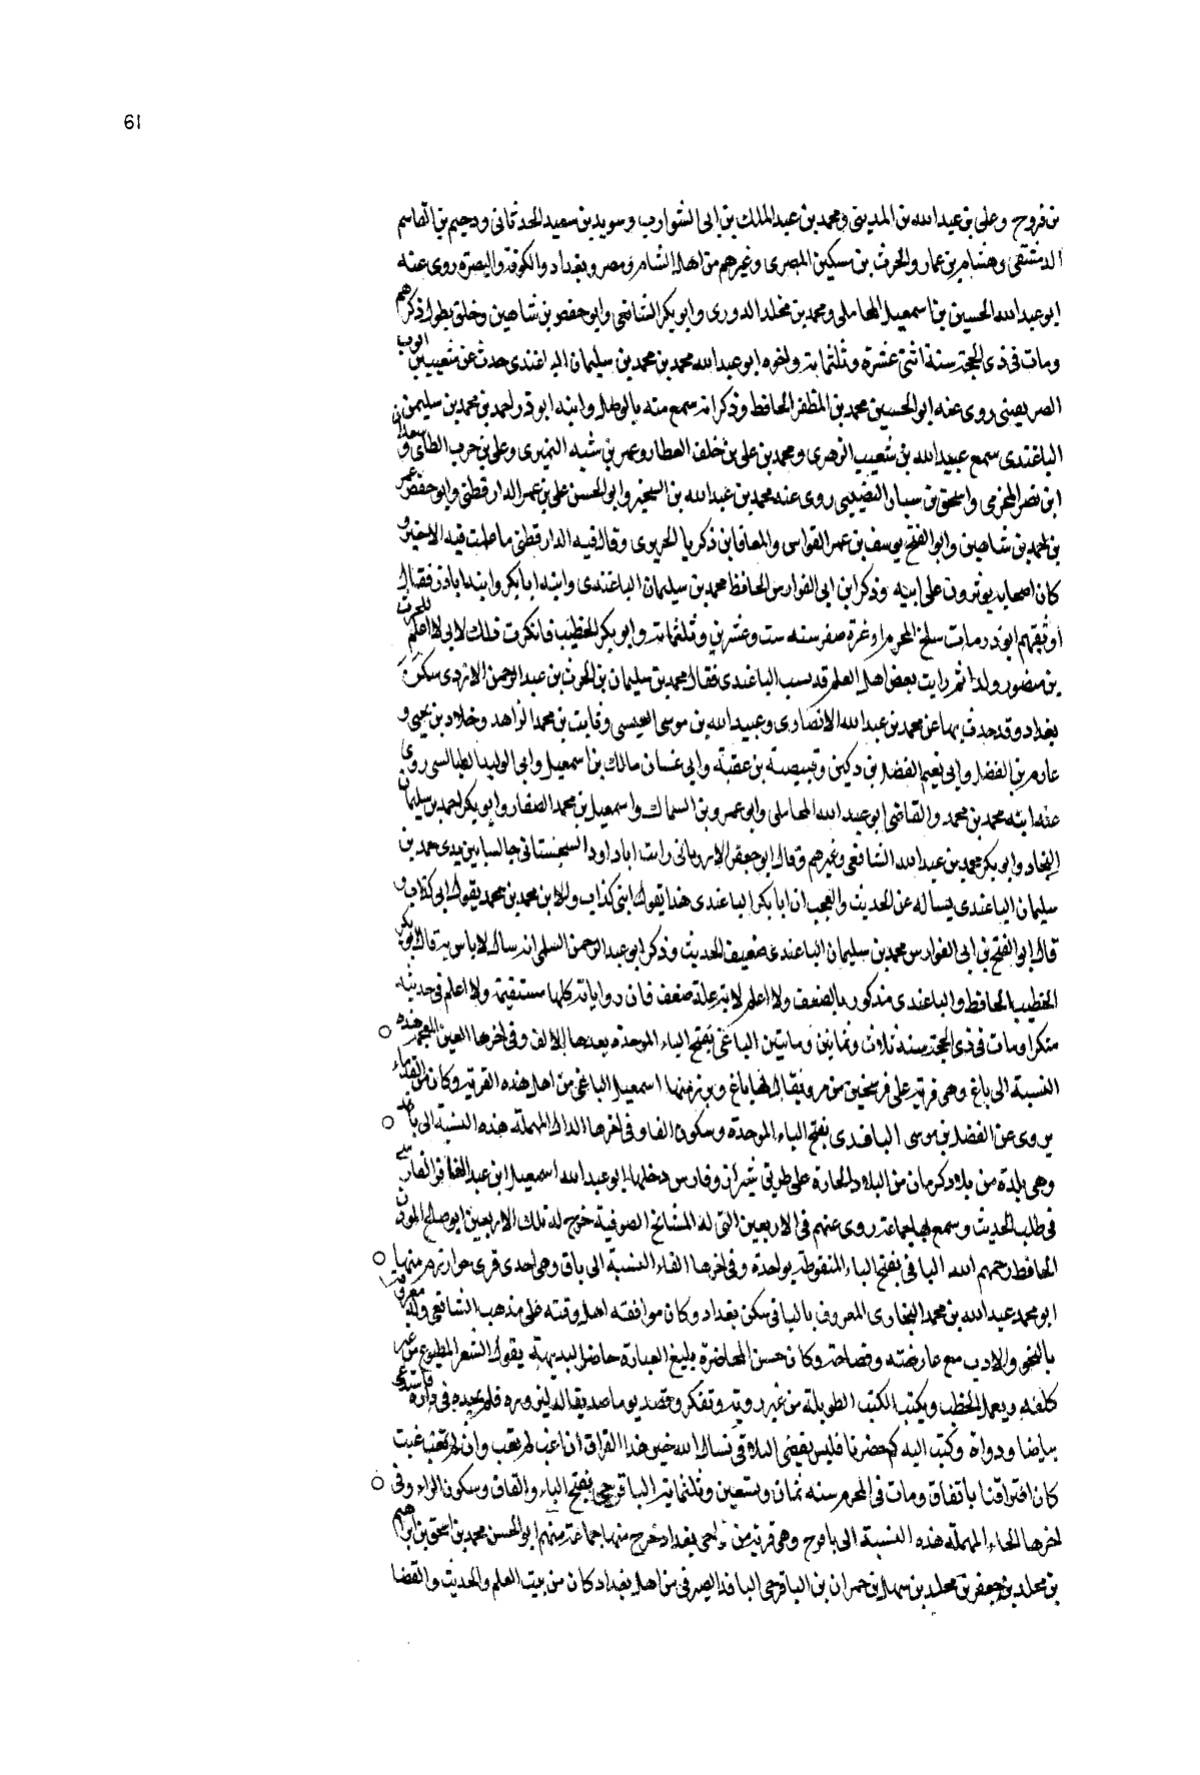 61
بن فروح وعلى بن عبد الله بن المديني ومحمد بن عبد الملك بن ابى الشوارب وسويد بن سعيد الحدثانى ودحيم بن القاسم
الدمشقى وهشام بن عمار والحرث بن مسكين المصرى وغيرهم من اهل الشام ومصر وبغداد والكوفة والبصرة روى عنه
ابو عبد الله الحسين بن اسمعيل المحاملى ومحمد بن مخلد الدورى وابو بكر الشافعى وابو حفص بن شاهين وخلق يطول ذكرهم
ومات فى ذى الحجة سنة اثنتى عشرة وثلثماية واخوه ابو عبد الله محمد بن محمد بن سليمان الباغندى حدث عن شعيب بن ايوب
الصريفينى روى عنه ابو الحسين محمد بن المظفر الحافظ وذكر انه سمع منه بالموصل وابنه ابو ذر احمد بن محمد بن سليمن
الباغندى سمع عبيد الله بن شعيب الزهرى ومحمد بن على بن خلف العطار وعمر بن شبه النميرى وعلى بن حرب الطائى وسعدان
ابن نصر المخرمى واسحق بن سيار النصيبى روى عنه محمد بن عبد الله بن الشخير وابو الحسن على بن عمر الدارقطنى وابو حفص عمر
بن احمد بن شاهين وابو الفتح يوسف بن عمر القواس والمعافا بن زكريا الجريرى وقال فيه الدارقطنى ما علمت فيه الا خيرا و
كان اصحابه يوثرونه على ابيه وذكر ابن ابى الفوارس الحافظ محمد بن سليمان الباغندى وابنه ابا بكر وابنه ابا ذر فقال
اوثقهم ابو ذر ومات سلخ المحرم او غرة صفر سنه ست وعشرين وثلثماية وابو بكر الخطيب فانكرت ذلك لانى لا اعلم للحرث
بن منصور ولدا ثم رايت بعض اهل العلم قد نسب الباغندى فقال محمد بن سليمان بن الحرث بن عبد الرحمن الازدى سكن
بغداد وقد حدث بها عن محمد بن عبد الله الانصارى وعبيد الله بن موسى العبسى وثابت بن محمد الزاهد وخلاد بن يحيى و
عارم بن الفضل وابى نعيم الفضل بن دكين وقبيصة بن عقبة وابى غسان مالك بن اسمعيل وابى الوليد الطيالسى روى
عنه ابنه محمد بن محمد والقاضى ابو عبد الله المحاملى وابو عمرو بن السماك واسمعيل بن محمد الصفار وابو بكر احمد بن سليمان
النجاد وابو بكر محمد بن عبد الله الشافعى وغيرهم وقال ابو جعفر الارزنانى رايت ابا داود السجستانى جالسا بين يدى محمد بن
سليمان الباغندى يساله عن الحديث والعجب ان ابا بكر الباغندى هذا يقول ابنى كذاب والابن محمد بن محمد يقول ابى كذاب و
قال ابو الفتح بن ابى الفوارس محمد بن سليمان الباغندى ضعيف الحديث وذكر ابو عبد الرحمن السلمى انه ساله لا باس به قال ابو بكر
الخطيب الحافظ والباغندى مذكور بالضعف ولا اعلم لاية علة ضعف فان رواياته كلها مستقيمة ولا اعلم فى حديثه
منكرا ومات فى ذى الحجة سنه ثلاث وثمانين ومايتين الباغى بفتح الباء الموحدة بعدها الالف وفى اخرها الغين المعجمة هذه
النسبة الى باغ وهى قرية على فرسخين من مرو يقال لها باغ وبرزن منها اسمعيل الباغى من اهل هذه القرية وكان من القدماء
يروى عن الفضل بن موسى البافدى بفتح الباء الموحدة وسكون الفاء وفى اخرها الدال المهملة هذه النسبة الى بافد
وهى بلدة من بلاد كرمان من البلاد الحارة على طريق شيراز وفارس دخلها ابو عبد الله اسمعيل ابن عبد الغافر الفارسى
فى طلب الحديث وسمع بها جماعة روى عنهم فى الاربعين التى له المشائخ الصوفية خرج له تلك الاربعين ابو صالح الموذن
الحافظ رحمهم الله البافى بفتح الباء المنقوطة بواحدة وفى اخرها الفاء النسبة الى باف وهى احدى قرى خوارزم منها
ابو محمد عبد الله بن محمد البخارى المعروف بالبافى سكن بغداد وكان من افقه اهل وقته على مذهب الشافعى وله معرفة
بالنحو والادب مع عارضته وفصاحة وكان حسن المحاضرة بليغ العبارة حاضر البديهة يقول الشعر المطبوع من غير
كلفة ويعمل الخطب ويكتب الكتب الطويلة من غير روية وتفكر وقصد يوما صديقا له ليزوره فلم يجده فى داره فاستدعى
بياضا ودواة وكتب اليه كم حضرنا فليس يقضى التلاقى نسال الله خير هذا الفراق ان اغب لم تغب وان لم تغب غبت
كان افتراقنا باتفاق ومات فى المحرم سنه ثمان وتسعين وثلثماية الباقرحى بفتح الباء والقاف وسكون الراء وفى
اخرها الحاء المهملة هذه النسبة الى باقرح وهى قرية من نواحى بغداد خرج منها جماعة منهم ابو الحسن محمد بن اسحق بن ابراهيم
بن مخلد بن جعفر بن مخلد بن سهل بن حمران بن الباقرحى الصيرفى من اهل بغداد كان من بيت العلم والحديث والقضا